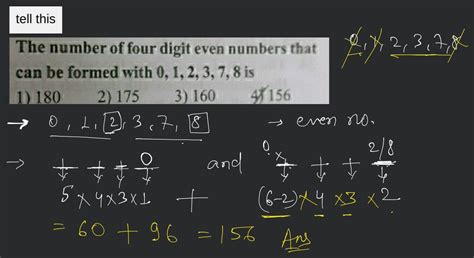 tell this
0, 1, 2, 3, 7, 8
The number of four digit even numbers that
can be formed with 0, 1, 2, 3, 7, 8 is
1) 180 2) 175 3) 160 4) 156
→ 0, 1, 2, 3, 7, 8 → even no.
→ 0 and 0 x 2/8
5 x 4 x 3 x 1 + (6-2) x 4 x 3 x 2
= 60 + 96 = 156 Ans